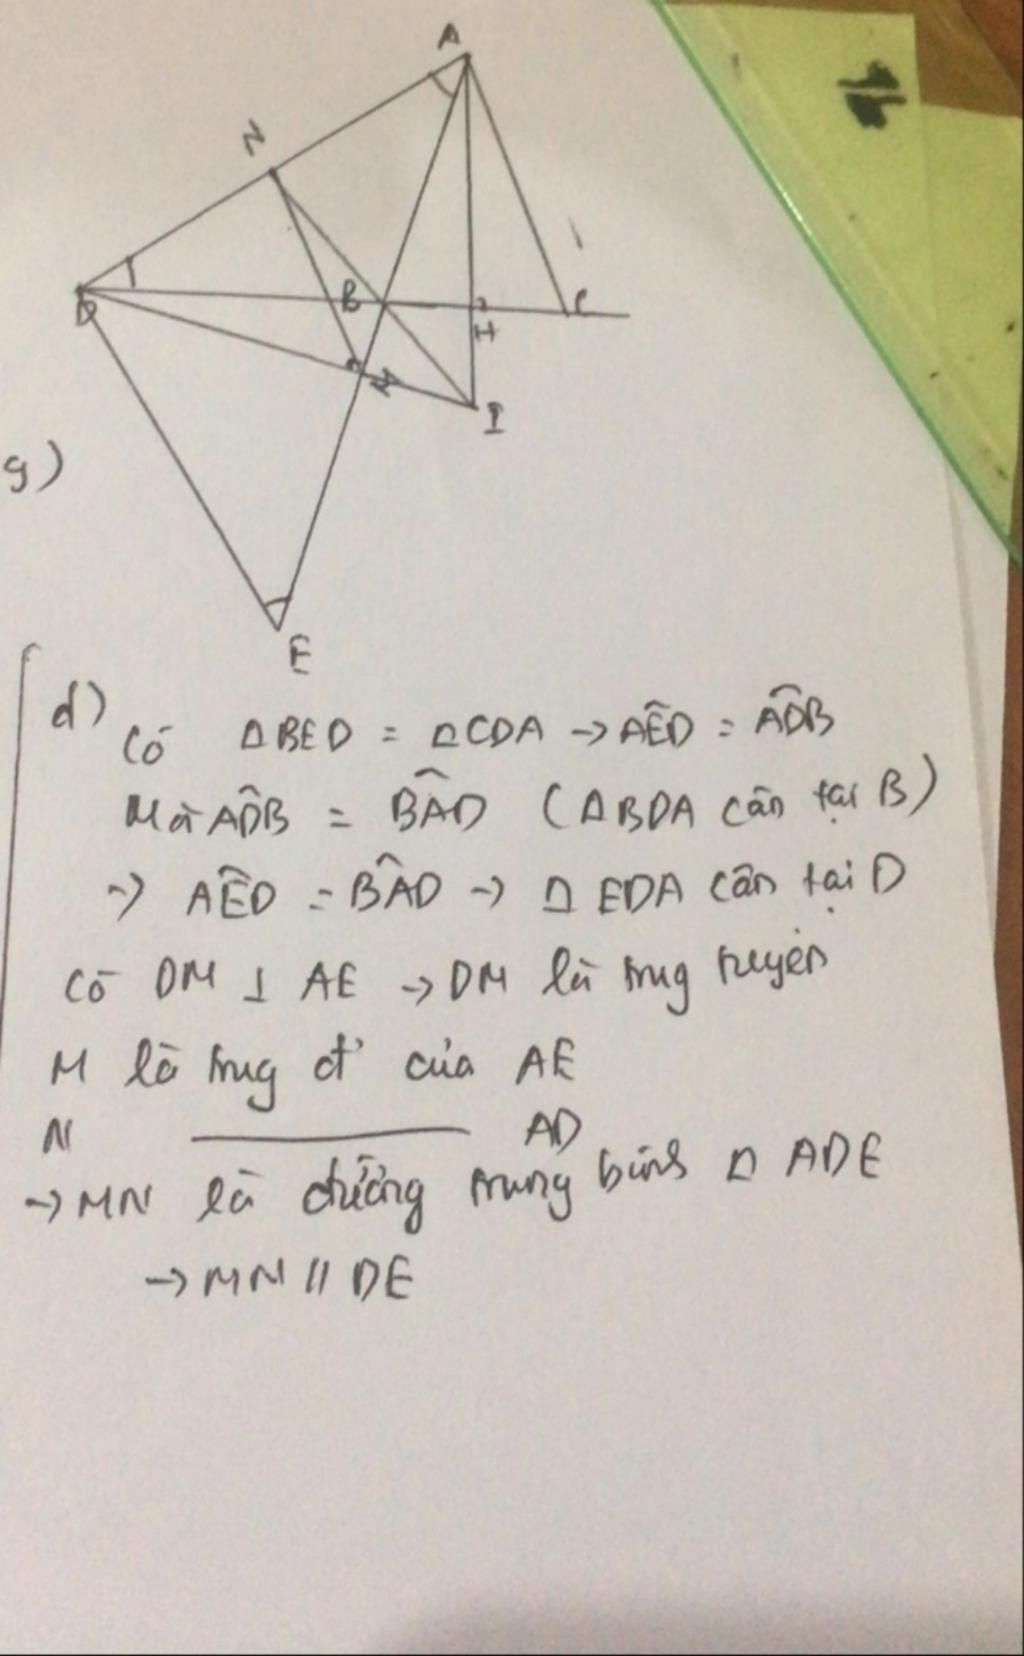 A
N
B
D
H
C
M
I
g)
E
d)
Có ΔBED = ΔCDA → AÊD = AD̂B
Mà AD̂B = BÂD (ΔBDA cân tại B)
→ AÊD = BÂD → Δ EDA cân tại D
Có DM ⊥ AE → DM là trug tuyến
M là trug đ' của AE
N ——— AD
→ MN là đường trung bình Δ ADE
→ MN // DE